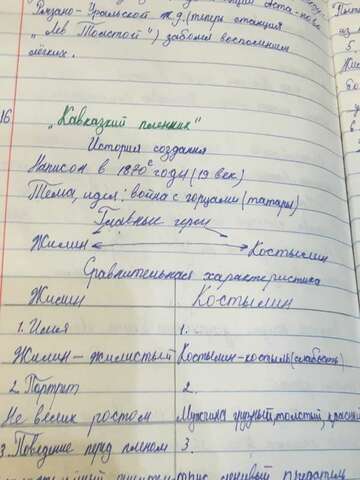 Рязано-Уральской ж.д. (теперь станция
„Лев Толстой") заболел воспалением
лёгких.
16
„Кавказкий пленник"
История создания
Написан в 1870ᵉ годы (19 век)
Тема, идея: война с горцами (татары)
Главные герои
Жилин Костылин
Сравнительная характеристика
Жилин Костылин
1. Имя 1.
Жилин – жилистый Костылин – костыль (слабость)
2. Портрет 2.
Не велик ростом Мужчина грузный, толстый, красный
3. Поведение перед пленом 3.
ленивый предатель